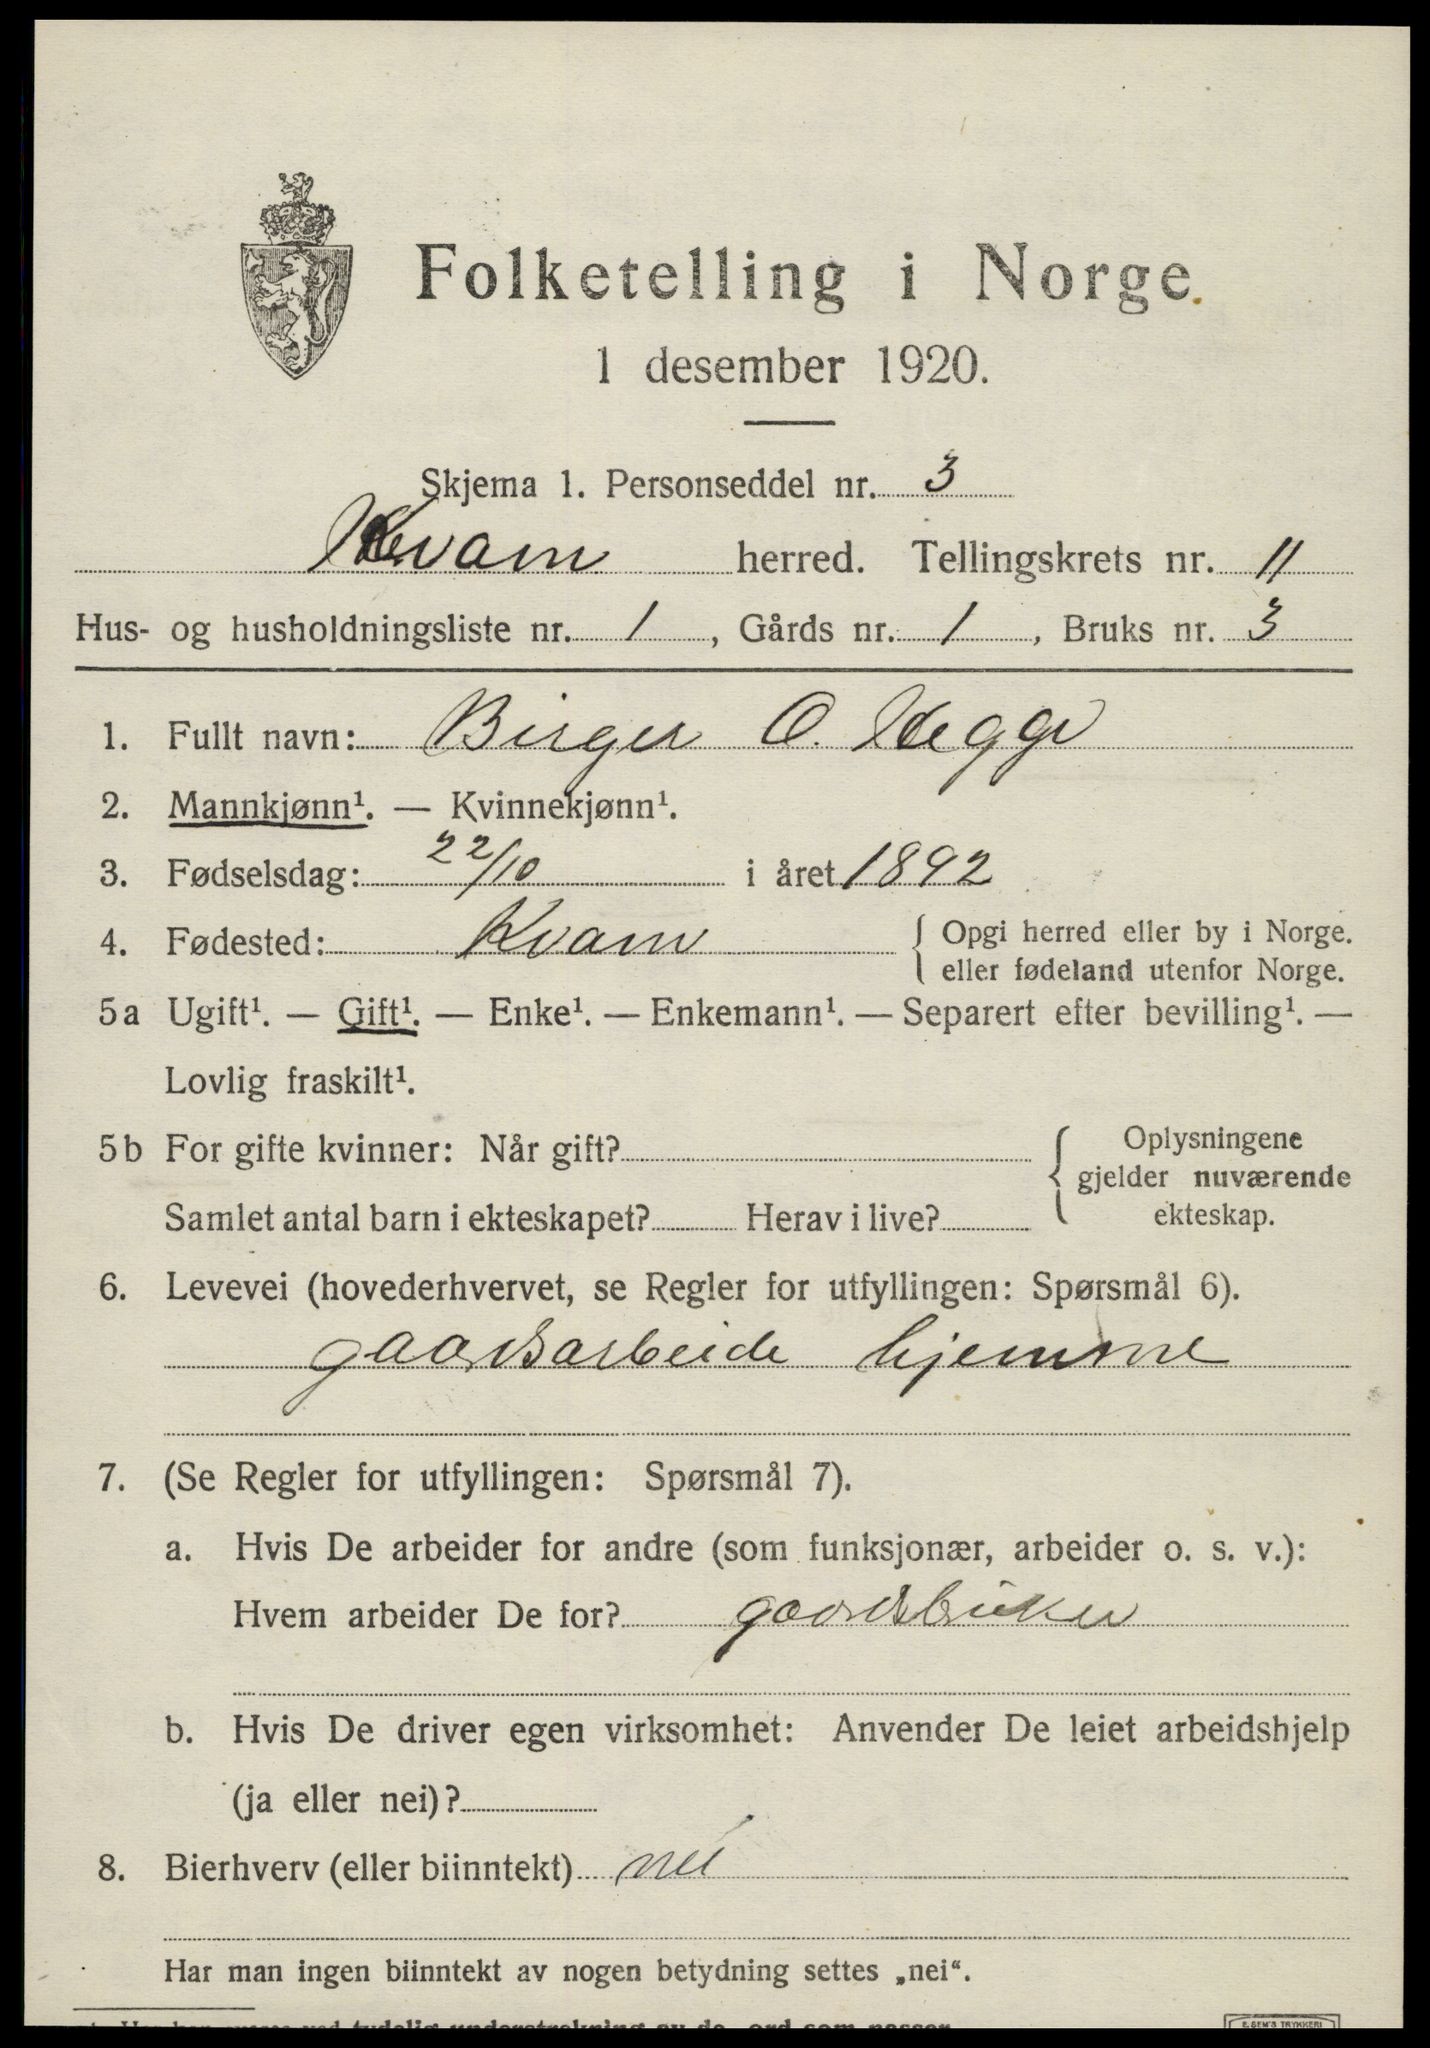 Folketelling i Norge
1 desember 1920.
Skjema 1. Personseddel nr. 3
Kvam herred. Tellingskrets nr. 11
Hus- og husholdningsliste nr. 1, Gårds nr. 1, Bruks nr. 3
1. Fullt navn: Birger O. Hegge
2. Mannkjønn¹. — Kvinnekjønn¹.
3. Fødselsdag: 22/10 i året 1892
4. Fødested: Kvam { Opgi herred eller by i Norge.
eller fødeland utenfor Norge.
5a Ugift¹. — Gift¹. — Enke¹. — Enkemann¹. — Separert efter bevilling¹. —
Lovlig fraskilt¹.
5b For gifte kvinner: Når gift? { Oplysningene
gjelder nuværende
Samlet antal barn i ekteskapet? Herav i live? ekteskap.
6. Levevei (hovederhvervet, se Regler for utfyllingen: Spørsmål 6).
gaardsarbeide hjemme
7. (Se Regler for utfyllingen: Spørsmål 7).
a. Hvis De arbeider for andre (som funksjonær, arbeider o. s. v.):
Hvem arbeider De for? gaardsbruker
b. Hvis De driver egen virksomhet: Anvender De leiet arbeidshjelp
(ja eller nei)?
8. Bierhverv (eller biinntekt) nei
Har man ingen biinntekt av nogen betydning settes „nei“.
E. SEM'S TRYKKERI